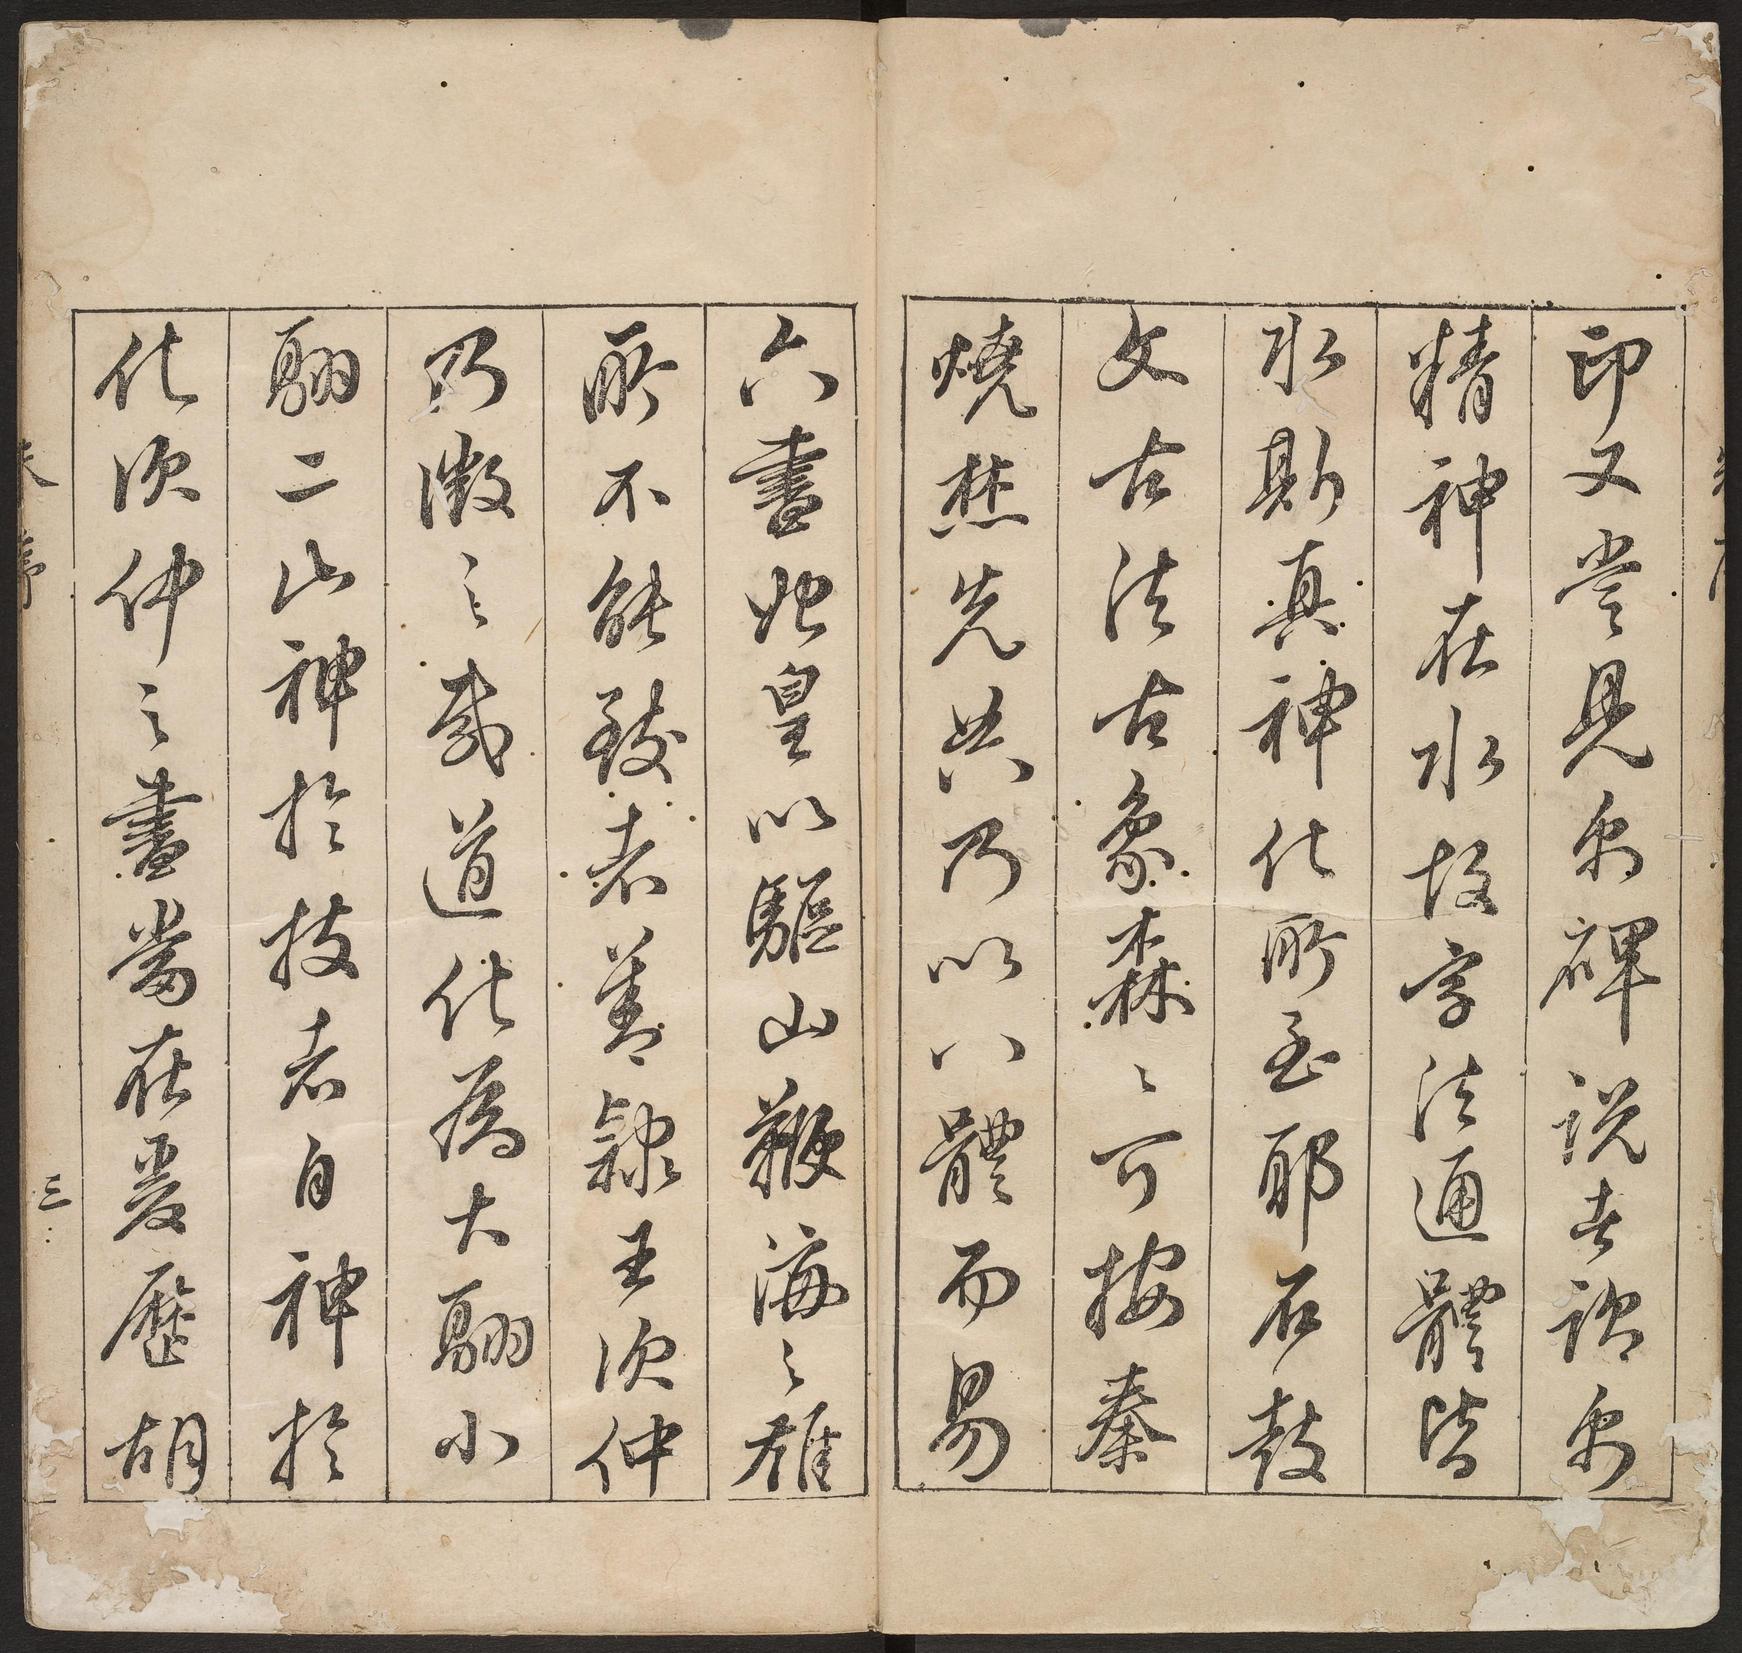 印又嘗見禹碑説者謂禹
精神在水故字法通體皆
水斯真神化所至耶石鼓
文古法古象森〻可按秦
燒焚先典乃以八體而易
六書始皇以驅山鞭海之雄
所不能致者善隸王次仲
乃微之或道化為大翮小
翮二山神於技者自神於
化次仲之書當在爰歷胡
三